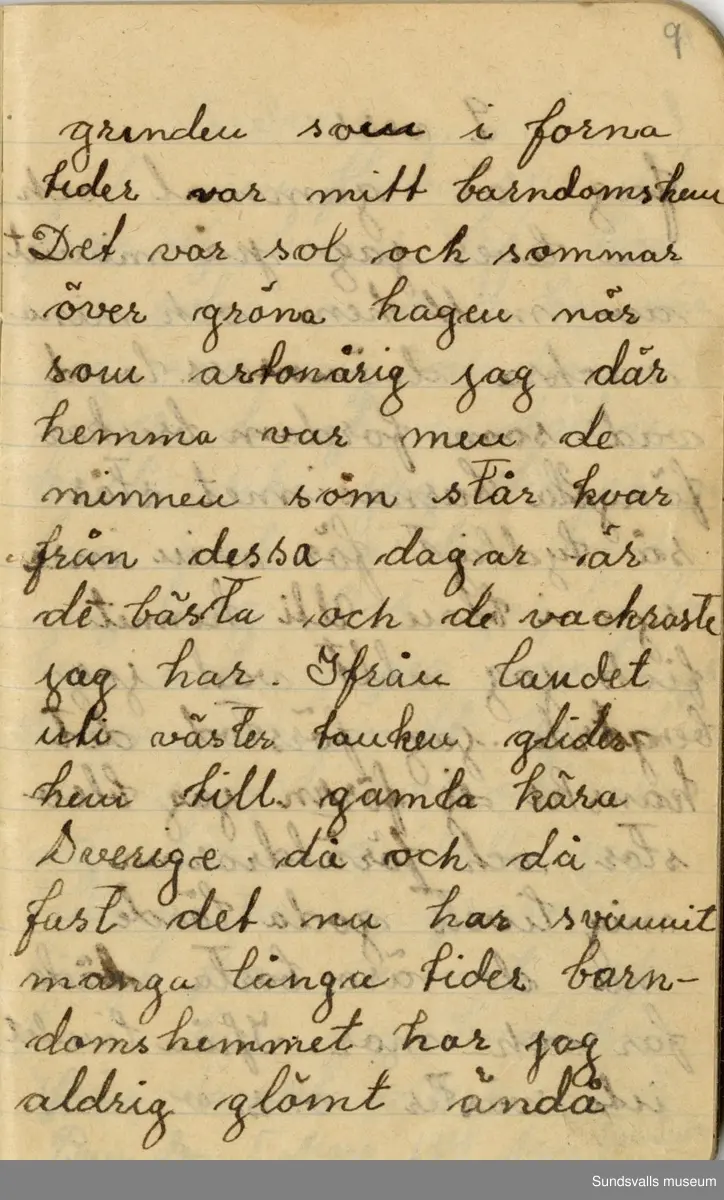 9
grinden som i forna
tider var mitt barndomshem
Det var sol och sommar
över gröna hagen när
som artonårig jag där
hemma var men de
minnen som står kvar
från dessa dagar är
de bästa och de vackraste
jag har. Ifrån landet
uti väster tanken glider
hem till gamla kära
Sverige då och då
fast det nu har svunnit
många långa tider barn-
domshemmet har jag
aldrig glömt ändå
Sundsvalls museum